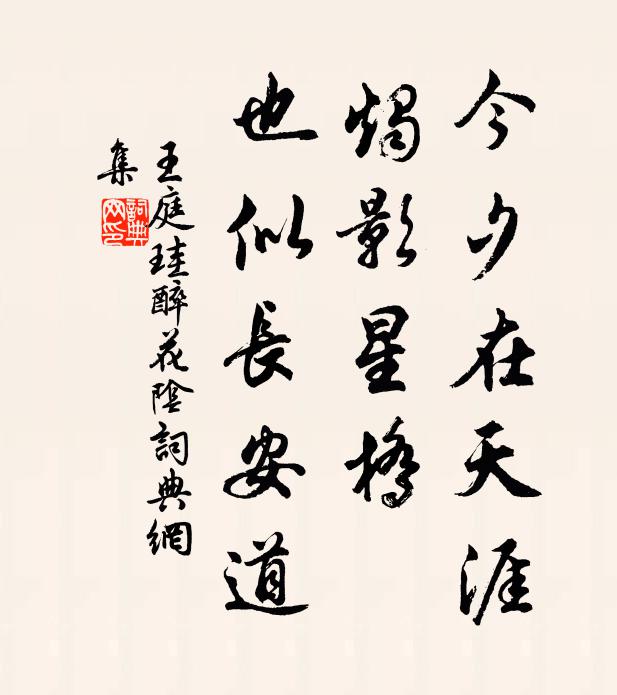 今夕在天涯
燭影星橋
也似長安道
王庭珪醉花陰詞典網
集
詞典
网印